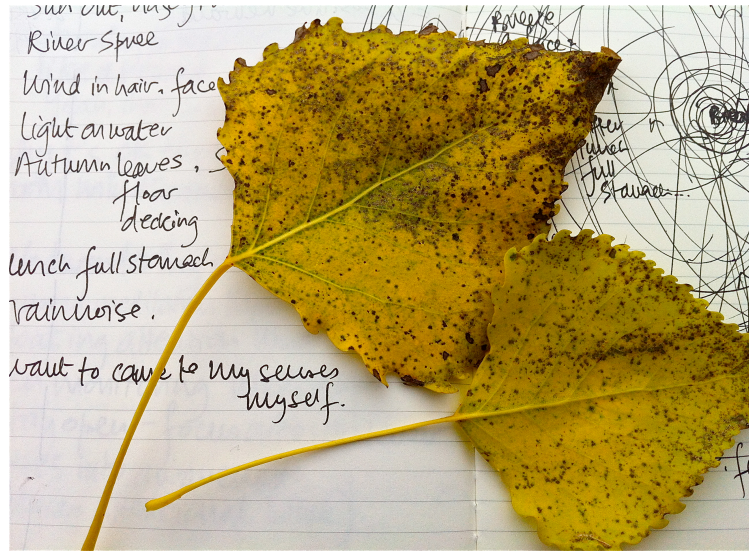 Sun out,
River Spree
Wind in hair. face
Light on water
Autumn leaves.
floor
decking
lunch full stomach
rain noise.
want to come to my senses
myself.
Breeze
lunch
full
stomach...